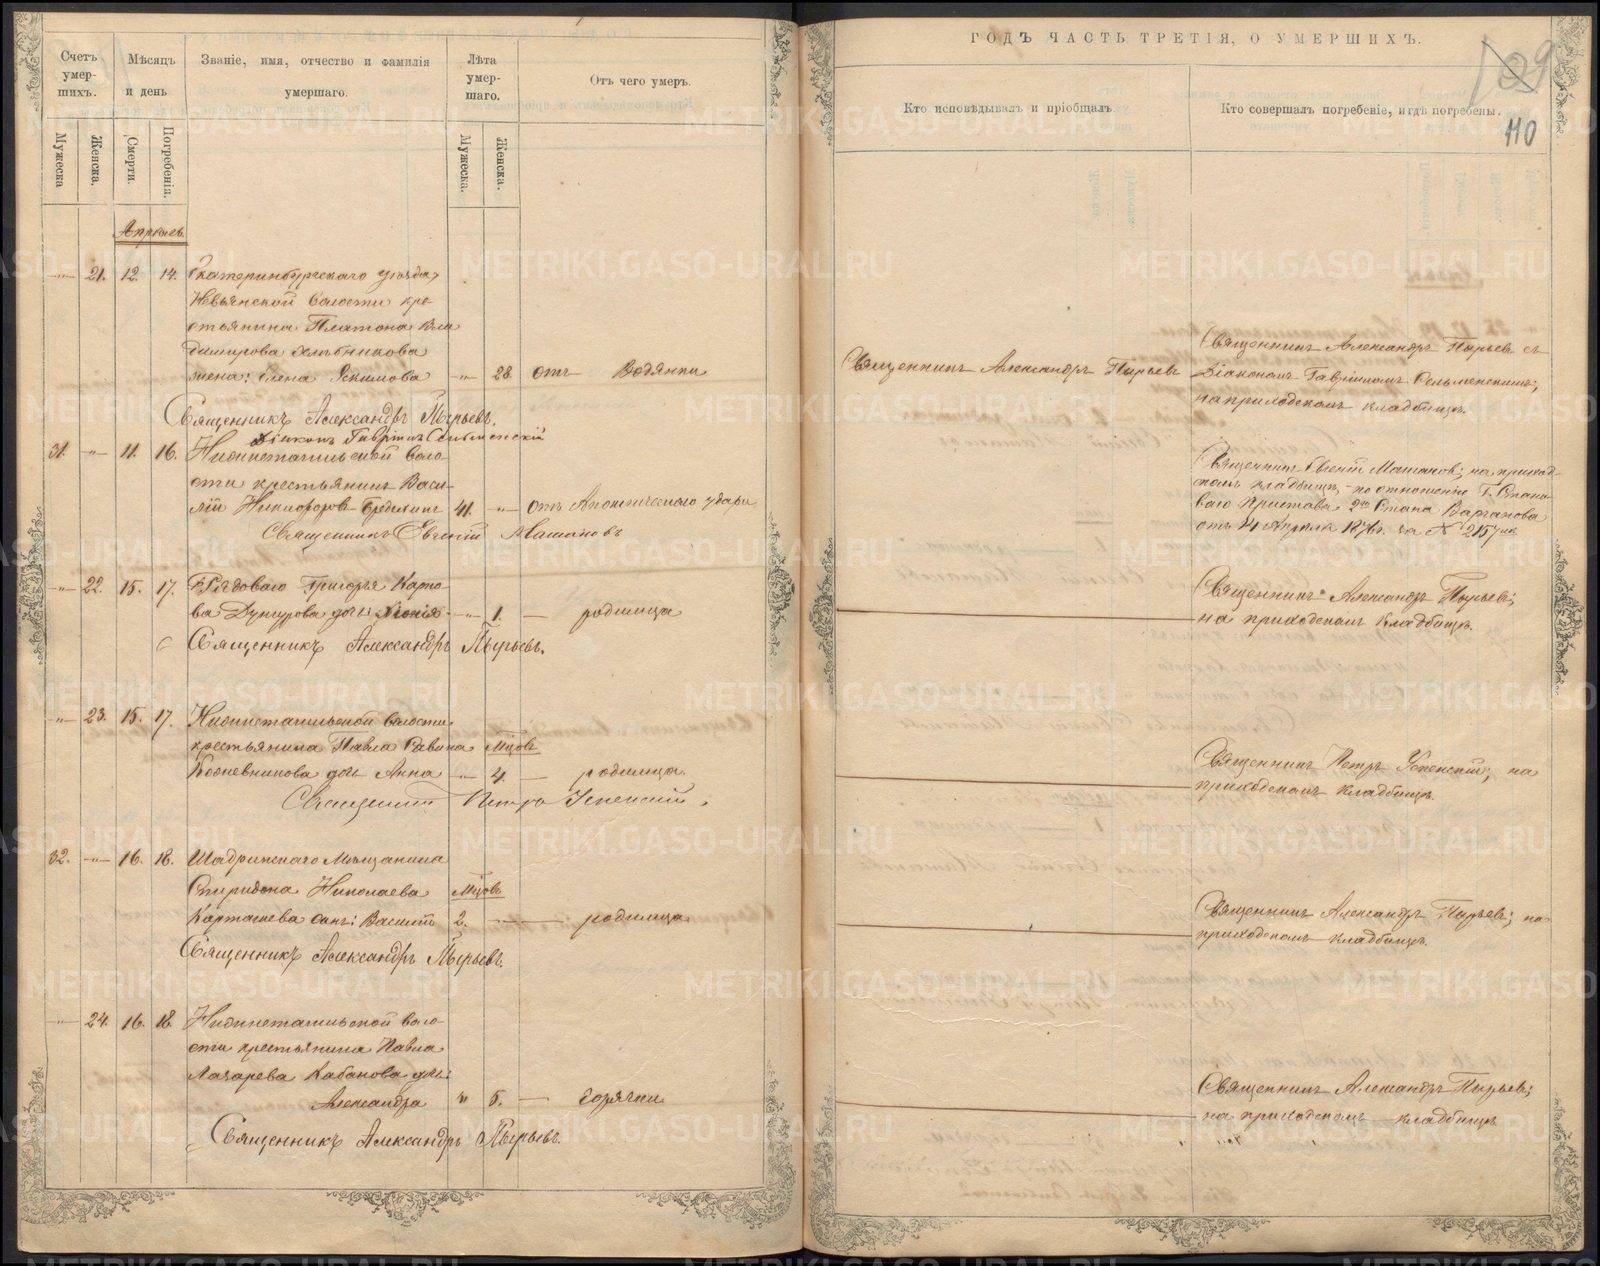 ГОДЪ ЧАСТЬ ТРЕТІЯ, О УМЕРШИХЪ.
109
110
Счетъ умер-шихъ.
Мѣсяцъ и день
Званіе, имя, отчество и фамилія умершаго.
Лѣта умер-шаго.
Отъ чего умеръ.
Кто исповѣдывалъ и пріобщалъ.
Кто совершалъ погребеніе, и гдѣ погребены.
Мужеска
Женска.
Смерти.
Погребенія.
Мужеска.
Женска.
Апрѣль
21. 12. 14. Екатеринбургскаго уѣзда,
Невьянской волости кре-
стьянина Платона Вла
димирова Хлѣбникова
жена: Елена Якимова 28. отъ Водянки
Священникъ Александръ Пырьевъ
Священникъ Александръ Пырьевъ съ
Діакономъ Гавріиломъ
на приходскомъ кладбищѣ.
Священникъ Александръ Пырьевъ.
Діаконъ Гавріилъ
31. 11. 16. Нижнетагильской воло-
сти крестьянинъ Васи-
лій Никифоровъ 41. отъ Апоплическаго удара
Священникъ Евгеній Машановъ; на приход-
скомъ кладбищѣ, по отношенію Г. Стано-
ваго Пристава 2го Стана
отъ 14 Апрѣля за № 215
Священникъ Евгеній Машановъ
22. 15. 17. Рядоваго Григорья Карпо-
ва дочь: 1. родимца
Священникъ Александръ Пырьевъ;
на приходскомъ кладбищѣ.
Священникъ Александръ Пырьевъ.
23. 15. 17. Нижнетагильской волости
крестьянина Павла Савина Мцовъ
Кожевникова дочь Анна 4. родимца
Священникъ Петръ Успенскій; на
приходскомъ кладбищѣ.
Священникъ Петръ Успенскій.
32. 16. 18. Шадринскаго Мѣщанина
Спиридона Николаева Мцовъ
Карташева сынъ: Василій 2. родимца
Священникъ Александръ Пырьевъ; на
приходскомъ кладбищѣ.
Священникъ Александръ Пырьевъ.
24. 16. 18. Нижнетагильской воло-
сти крестьянина Павла
Лазарева Кабанова дочь:
Александра 5. горячки
Священникъ Александръ Пырьевъ;
на приходскомъ кладбищѣ
Священникъ Александръ Пырьевъ.
METRIKI.GASO-URAL.RU